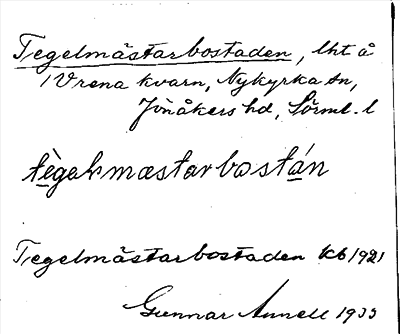 Tegelmästarbostaden, lht å
Vrena kvarn, Nykyrka sn,
Jönåkers hd, Sörml. l
tègəlmæstarbostán
Tegelmästarbostaden kb 1921
Gunnar Annell 1933